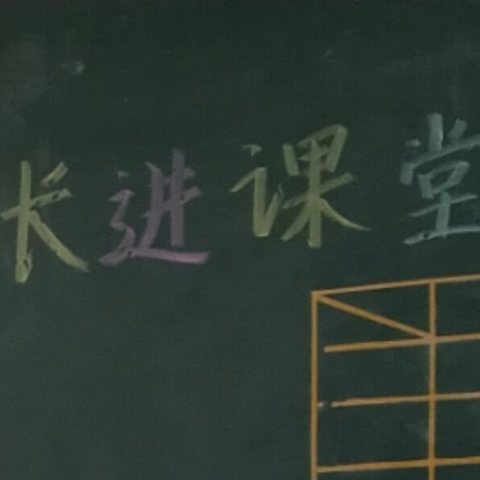 长进课堂